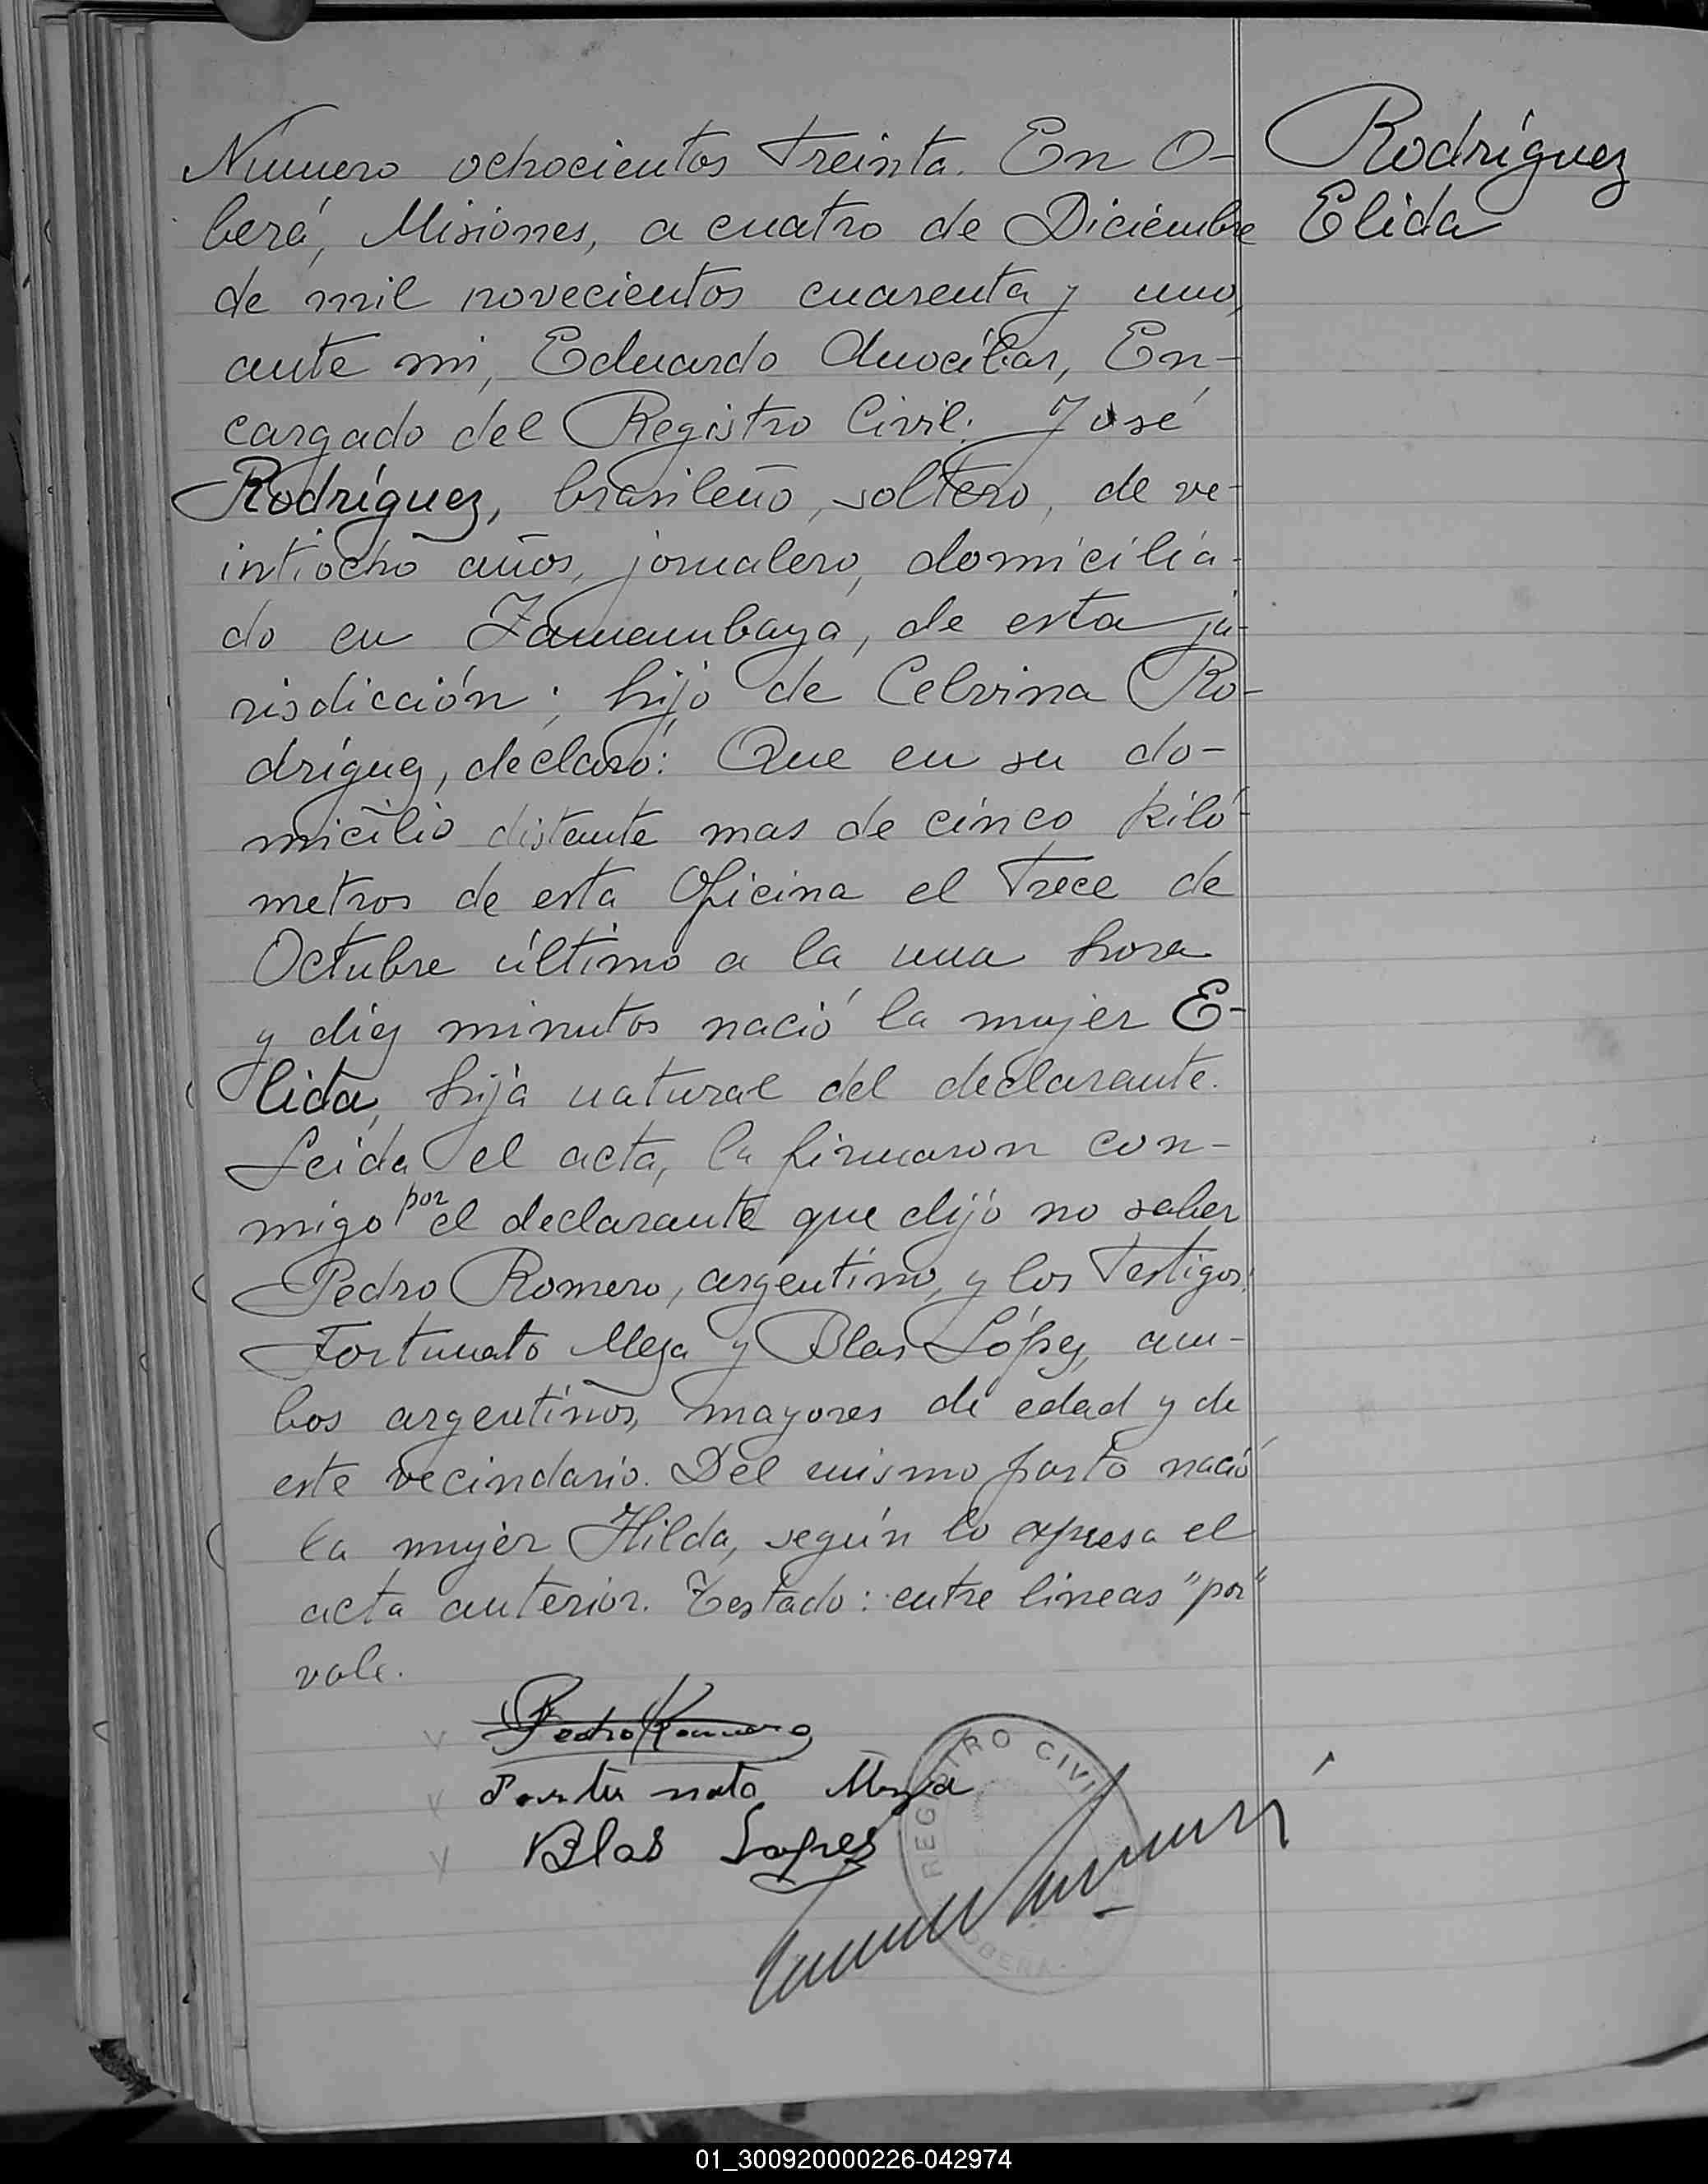 Rodríguez
Elida
Número ochocientos treinta. En O-
berá, Misiones, a cuatro de Diciembre
de mil novecientos cuarenta y uno,
ante mi, Eduardo En-
cargado del Registro Civil: José
Rodríguez, brasileño, soltero, de ve-
intiocho años, jornalero, domicilia-
do en de esta ju-
risdicción; hijo de Celvina Ro-
dríguez, declaró: Que en su do-
micilio distante mas de cinco kiló-
metros de esta Oficina el trece de
Octubre último a la una hora
y diez minutos nació la mujer E-
lida, hija natural del declarante.
Leida el acta, la firmaron con-
migo por el declarante que dijo no saber
Pedro Romero, argentino, y los testigos:
Fortunato Meza y Blas López, am-
bos argentinos, mayores de edad y de
este vecindario. Del mismo parto nació
la mujer Hilda, según lo expresa el
acta anterior. Testado: entre lineas "por"
vale.
Pedro Romero
Fortunato Meza
Blas Lopes
REGISTRO CIVIL
OBERA
01_300920000226-042974